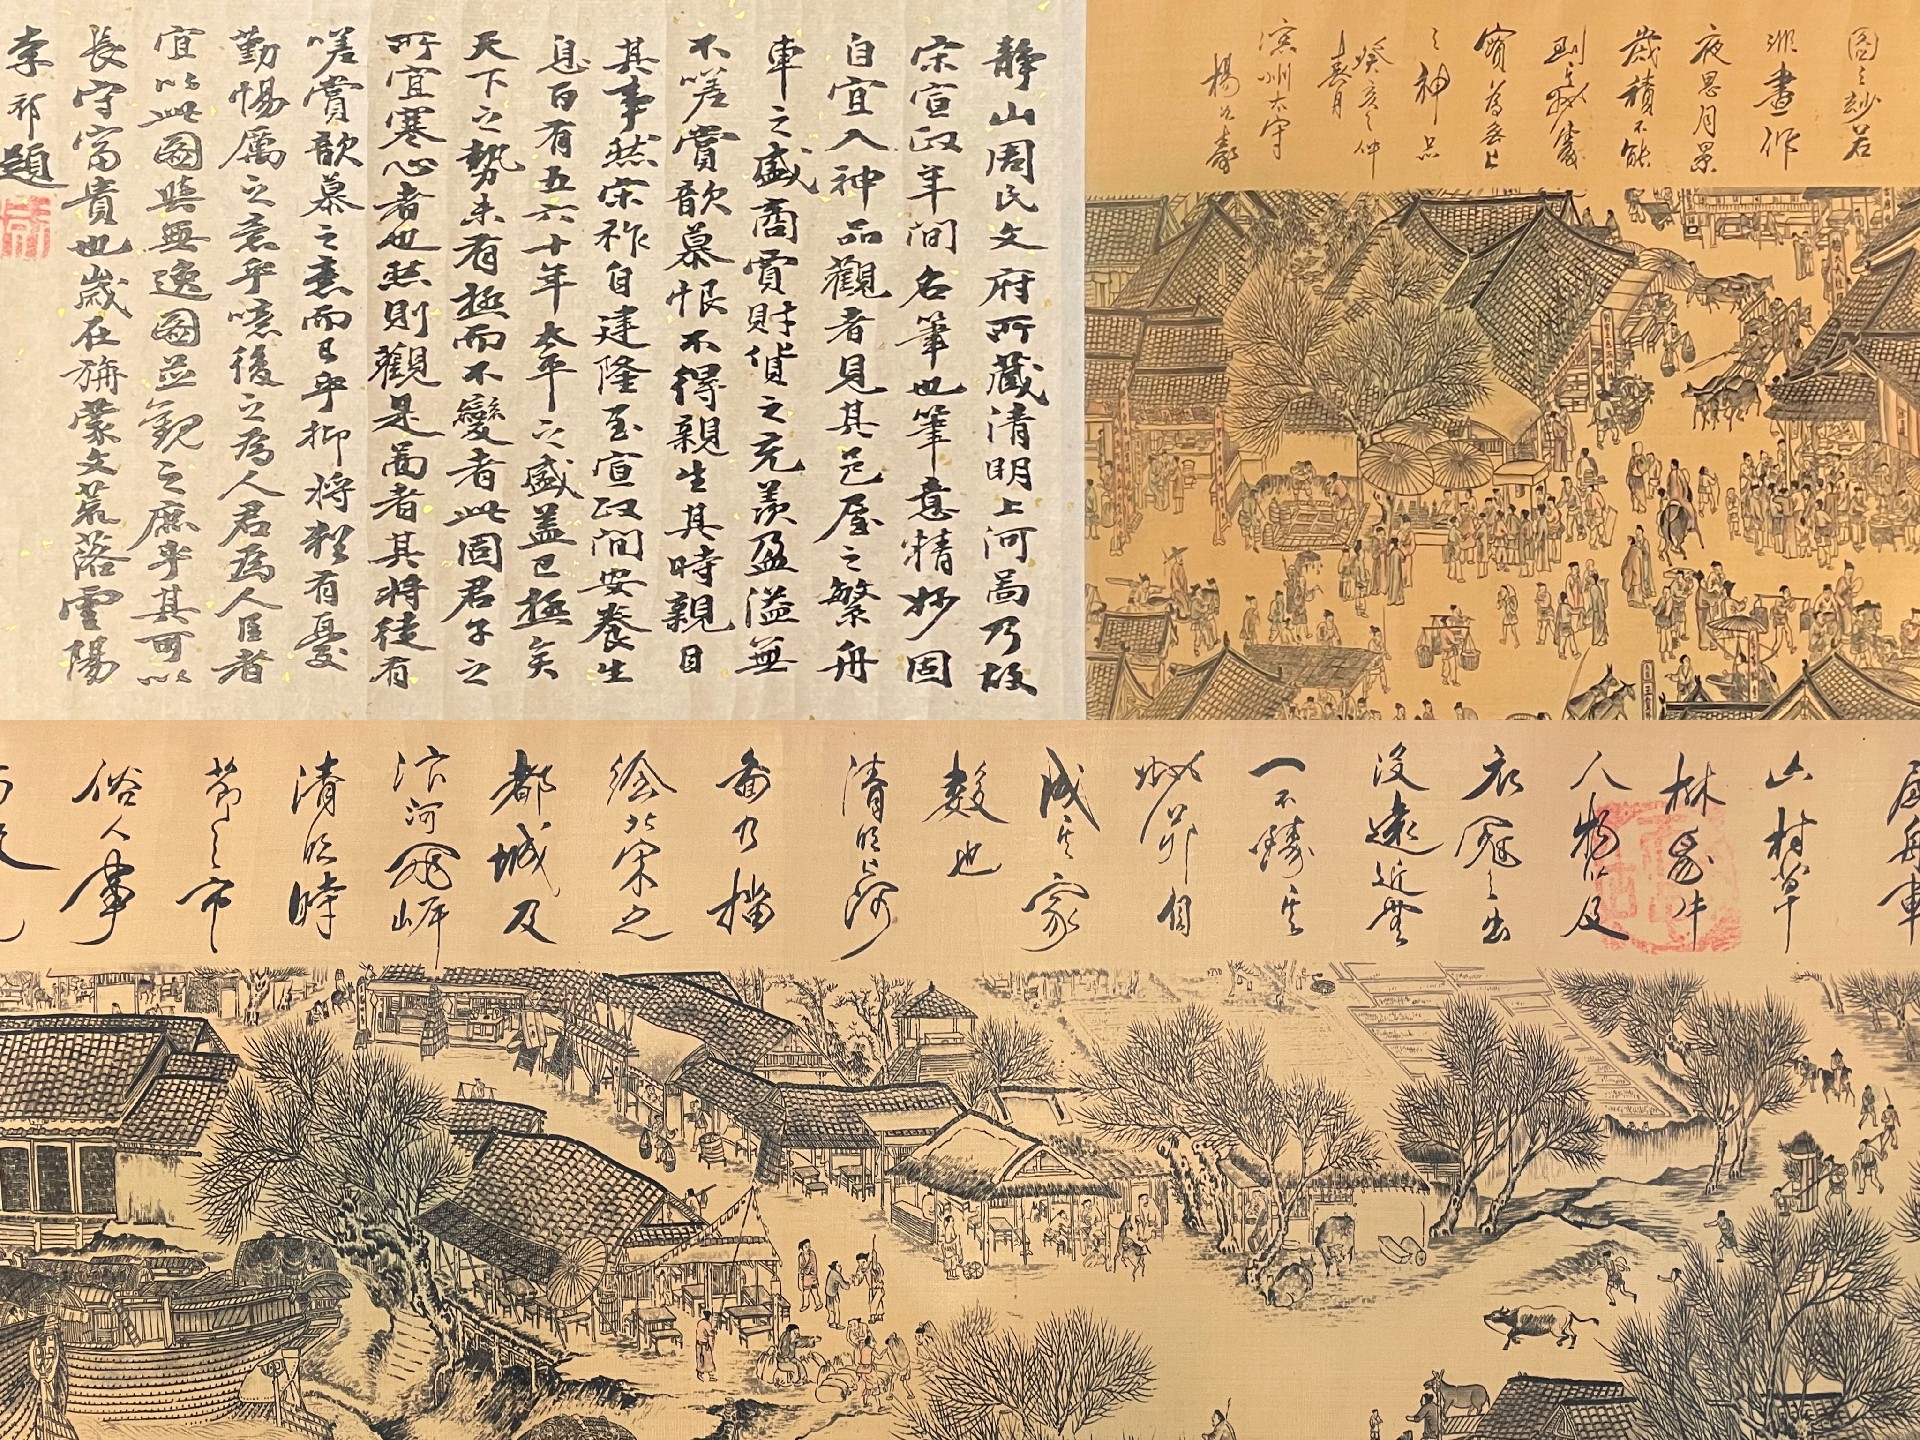 静山周氏文府所藏清明上河啚乃故
宋宣政年间名筆也筆意精妙固
自宜入神品觀者見其邑屋之繁舟
車之盛商賈財貨之充羨盈溢無
不嗟賞歆慕恨不得親生其時親目
其事然宋祚自建隆至宣政间安養生
息百有五六十年太平之盛蓋已極矣
天下之勢未有極而不變者此固君子之
所宜寒心者也然則觀是啚者其將徒有
嗟賞歆慕之意而已乎抑將猶有憂
勤惕厲之意乎噫後之為人君為人臣者
宜以此圖與無逸圖並觀之庶乎其可以
長守富貴也歲在旃蒙文荒落雲陽
李祁題
圖之妙若
非畫作
夜思月累
歲積不能
到其妙處
實為無上
之神品
癸亥之仲
春月
濱州太守
楊公壽
屋舟車
山村草
林馬牛
人物以及
衣冠之出
沒遠近無
一不臻其
妙自
成其家
數也
清明上河
圖乃描
繪北宋之
都城及
汴河兩岸
清明時
節之市
俗人事